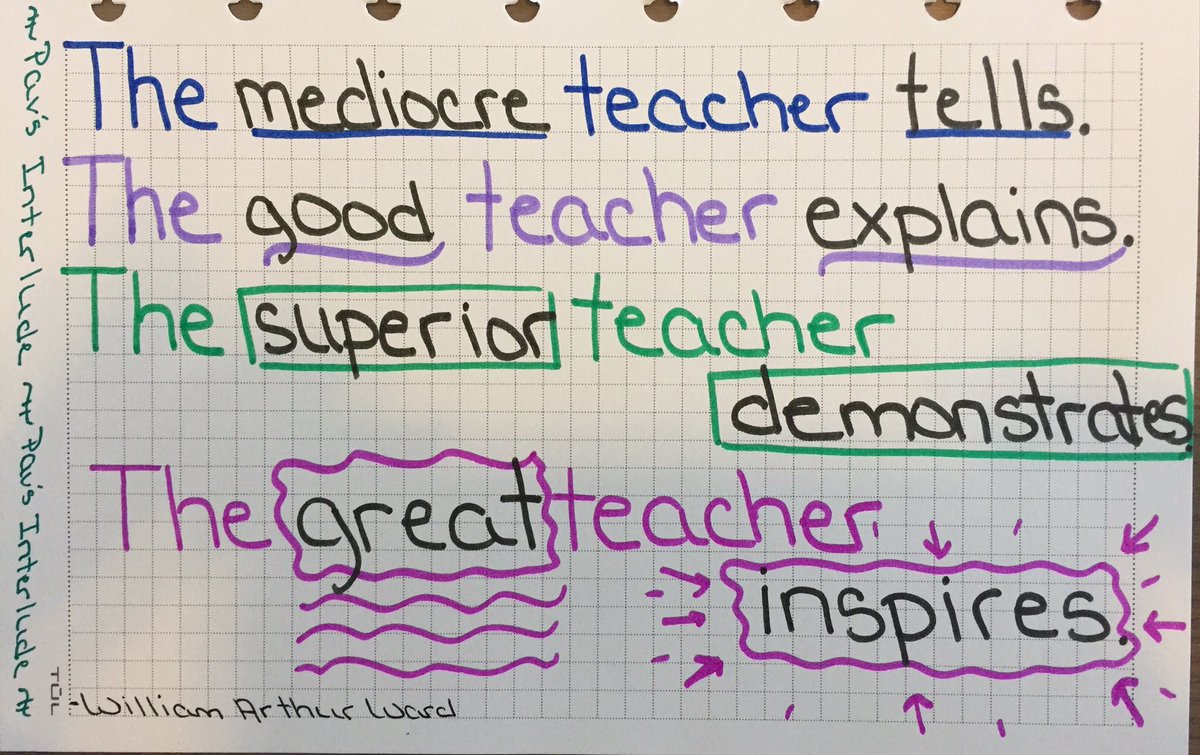 The mediocre teacher tells.
The good teacher explains.
The superior teacher
demonstrates.
The great teacher
inspires.
-William Arthur Ward
TŪL
~Pav's Interlude ~ Pav's Interlude ~